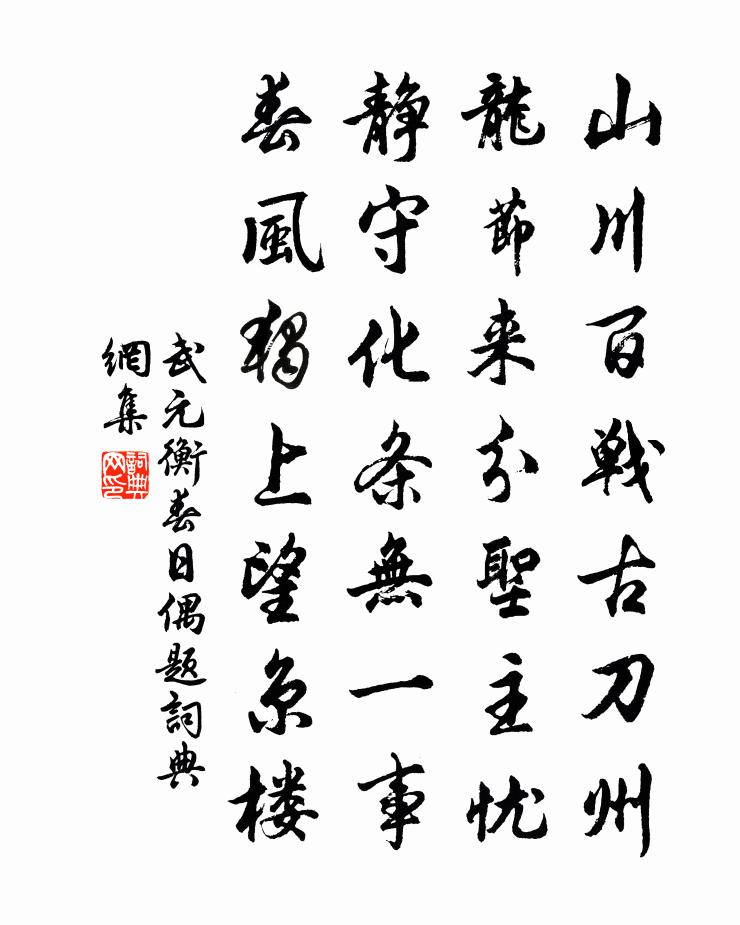 山川百戦古刀州
龍節来分聖主忧
静守化条無一事
春風獨上望京楼
武元衡春日偶题詞典
網集
詞典
网印